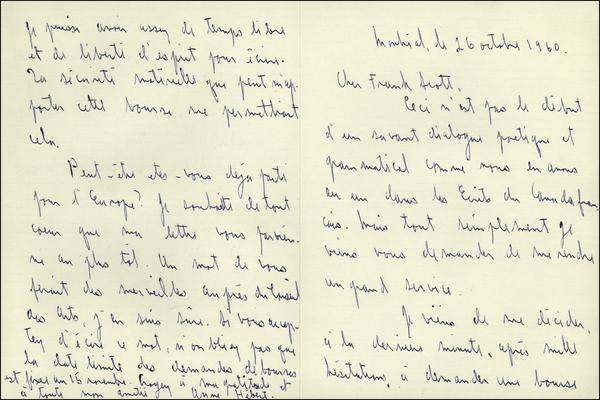 Montréal, le 26 octobre 1960.
Cher Frank Scott,
Ceci n'est pas le début
d'un savant dialogue poétique et
grammatical comme nous en avons
eu un dans les Ecrits du Canada fran-
çais. Mais tout simplement je
viens vous demander de me rendre
un grand service.
Je viens de me décider,
à la dernière minute, après mille
hésitations, à demander une bourse
je puisse avoir assez de temps libre
et de liberté d'esprit pour écrire.
La sécurité matérielle que peut m'ap-
porter cette bourse me permettrait
cela.
Peut-être êtes-vous déjà parti
pour l'Europe? Je souhaite de tout
coeur que ma lettre vous parvien-
ne au plus tôt. Un mot de vous
ferait des merveilles auprès du Conseil
des Arts, j'en suis sûre. Si vous accep-
tez d'écrire ce mot, n'oubliez pas que
la date limite des demandes de bourses
est fixée au 15 novembre. Croyez à ma gratitude et
à toute mon amitié Anne Hébert.